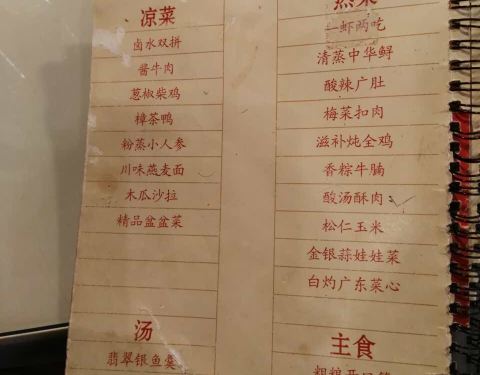 凉菜
卤水双拼
酱牛肉
葱椒柴鸡
樟茶鸭
粉蒸小人参
川味燕麦面
木瓜沙拉
精品盆盆菜
汤
翡翠银鱼羹
热菜
一虾两吃
清蒸中华鲟
酸辣广肚
梅菜扣肉
滋补炖全鸡
香粽牛腩
酸汤酥肉
松仁玉米
金银蒜娃娃菜
白灼广东菜心
主食